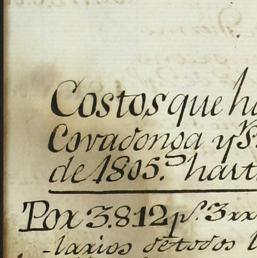 Costos que ha
Covadonga y S
de 1805. hast
Por 3.812 p.s 3 rr
larios de todos l